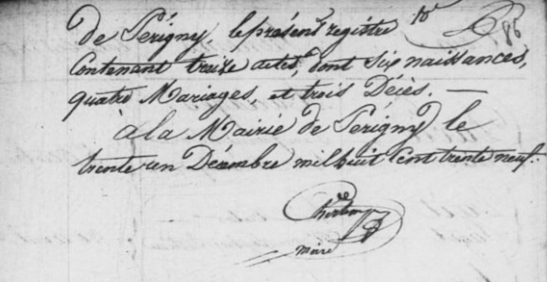 de Sérigny, le présent registre
Contenant treize actes, dont six naissances,
quatre Mariages, et trois Décès. —
à la Mairie de Sérigny le
trente un Décembre mil huit Cent trente neuf.
maire